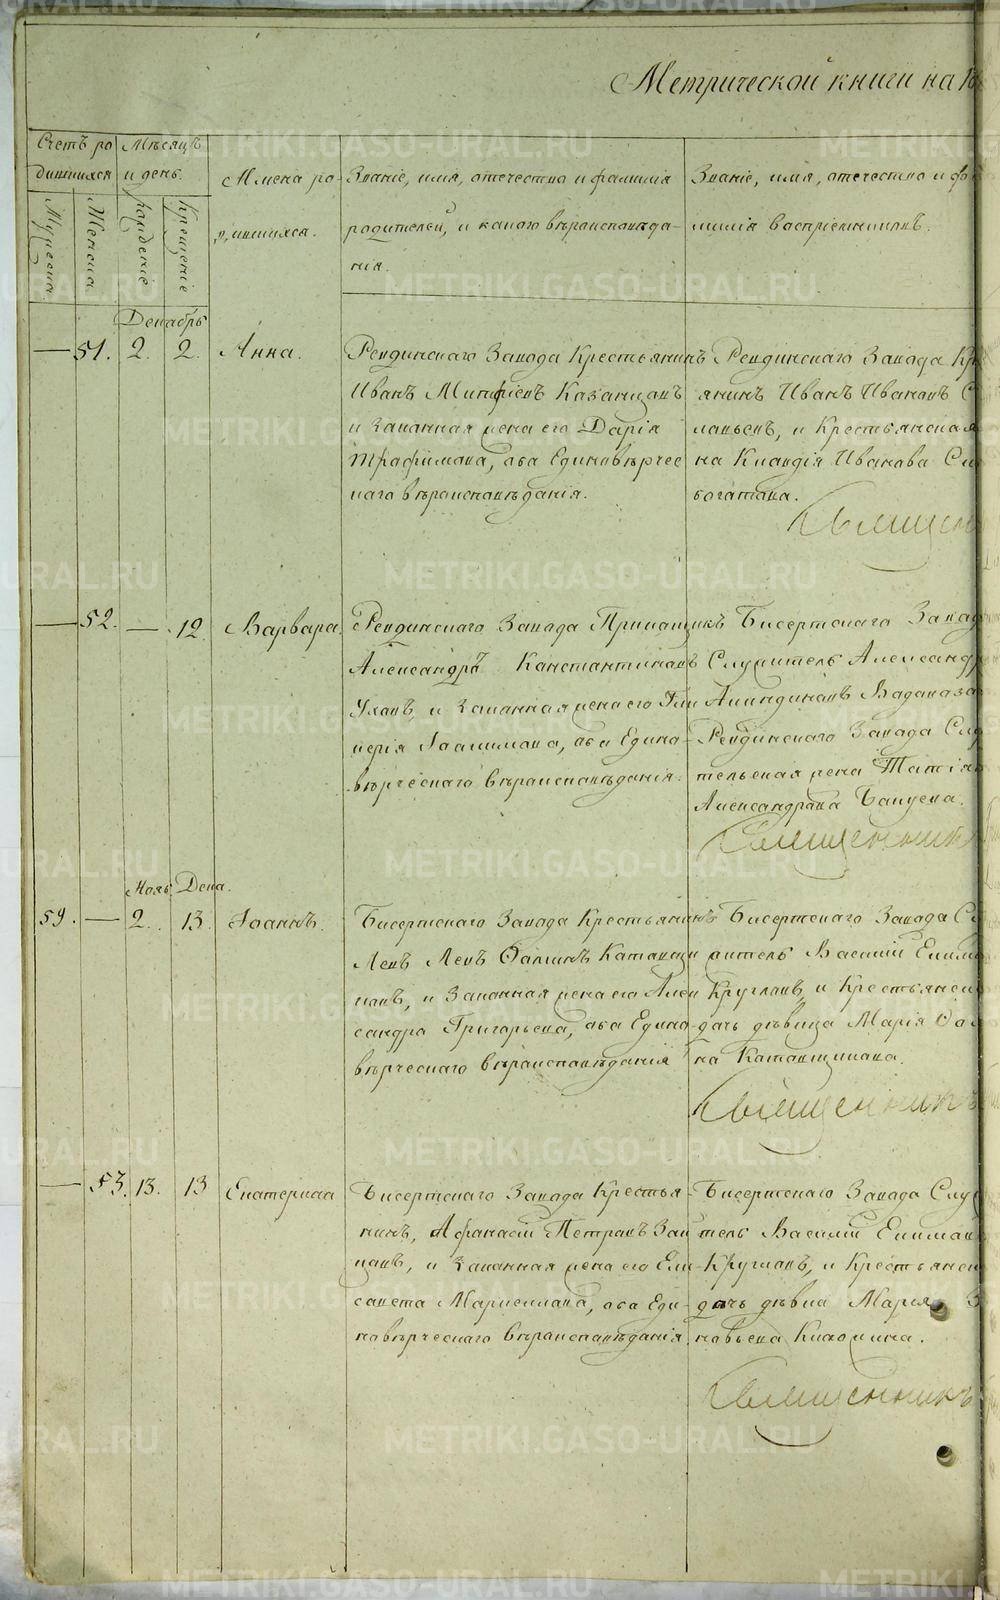 Метрической книги на 18
Счетъ ро
дившихся
Мѣсяцъ
и день.
Имена ро-
дившихся.
Званіе, имя, отечество и фамилія
родителей, и какого вѣроисповѣда-
нія.
Званіе, имя, отечество и фа
милія воспріемниковъ.
Мужеска
Женска
рожденіе
крещеніе
Декабрь
— 51. 2. 2. Анна.
Ревдинскаго Завода Крестьянинъ
Иванъ Казанцовъ
и Законная жена его Дарія
Трофимова, оба Единовѣрчес
каго вѣроисповѣданія.
Ревдинскаго Завода Кр
янинъ Иванъ Ивановъ С
и Крестьянская
на Клавдія Иванова Сл
богатова.
Священн
— 52. — 12. Варвара.
Ревдинскаго Завода Прикащикъ
Александръ Константиновъ
и Законная жена его Гли
керія Іоакимова, оба Едино-
вѣрческаго вѣроисповѣданія.
Бисертскаго Завод
Служитель Александр
Акиндиновъ
Ревдинскаго Завода Слу
тельская жена Татіян
Александрова
Священникъ
Нояб. Дека.
59. — 2. 13. Іоаннъ.
Бисертскаго Завода Крестьянинъ
Левъ Левъ Фоминъ Катавщи
ковъ, и Законная жена его Алек
сандра Григорьева, оба Едино-
вѣрческаго вѣроисповѣданія
Бисертскаго Завода С
житель Василій Еким
Кругловъ, и Крестьянск
дочь дѣвица Марія Фом
на Катавщикова.
Священникъ
— 53. 13. 13 Екатерина
Бисертскаго Завода Крестья-
нинъ, Афанасій Петровъ Зай
цовъ, и Законная жена его Ели-
савета Маркеллова, оба Еди-
новѣрческаго вѣроисповѣданія.
Бисертскаго Завода Слу
тель Василій Екимов
Кругловъ, и Крестьянск
дочь дѣвиц Марья З
новьева
Священникъ
METRIKI.GASO-URAL.RU